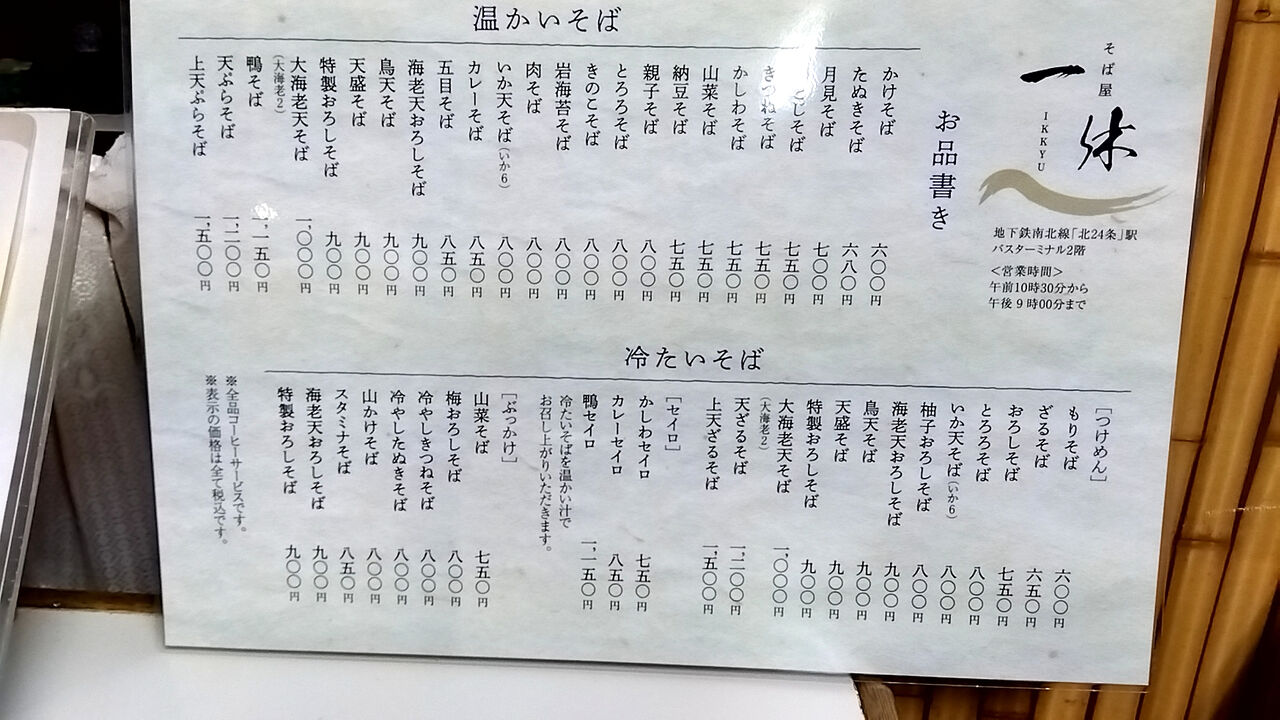 そば屋
一休
IKKYU
地下鉄南北線「北24条」駅
バスターミナル2階
＜営業時間＞
午前10時30分から
午後9時00分まで
お品書き
温かいそば
かけそば 六〇〇円
たぬきそば 六八〇円
月見そば 七〇〇円
としそば 七五〇円
きつねそば 七五〇円
かしわそば 七五〇円
山菜そば 七五〇円
納豆そば 七五〇円
親子そば 八〇〇円
とろろそば 八〇〇円
きのこそば 八〇〇円
岩海苔そば 八〇〇円
肉そば 八〇〇円
いか天そば（いか6） 八〇〇円
カレーそば 八五〇円
五目そば 八五〇円
海老天おろしそば 九〇〇円
鳥天そば 九〇〇円
天盛そば 九〇〇円
特製おろしそば 九〇〇円
大海老天そば 一、〇〇〇円
（大海老2）
鴨そば 一、一五〇円
天ぷらそば 一、二〇〇円
上天ぷらそば 一、五〇〇円
冷たいそば
［つけめん］
もりそば 六〇〇円
ざるそば 六五〇円
おろしそば 七五〇円
とろろそば 八〇〇円
いか天そば（いか6） 八〇〇円
柚子おろしそば 八〇〇円
海老天おろしそば 九〇〇円
鳥天そば 九〇〇円
天盛そば 九〇〇円
特製おろしそば 九〇〇円
大海老天そば 一、〇〇〇円
（大海老2）
天ざるそば 一、二〇〇円
上天ざるそば 一、五〇〇円
［セイロ］
かしわセイロ 七五〇円
カレーセイロ 八五〇円
鴨セイロ 一、一五〇円
冷たいそばを温かい汁で
お召し上がりいただきます。
［ぶっかけ］
山菜そば 七五〇円
梅おろしそば 八〇〇円
冷やしきつねそば 八〇〇円
冷やしたぬきそば 八〇〇円
山かけそば 八〇〇円
スタミナそば 八五〇円
海老天おろしそば 九〇〇円
特製おろしそば 九〇〇円
※全品コーヒーサービスです。
※表示の価格は全て税込です。